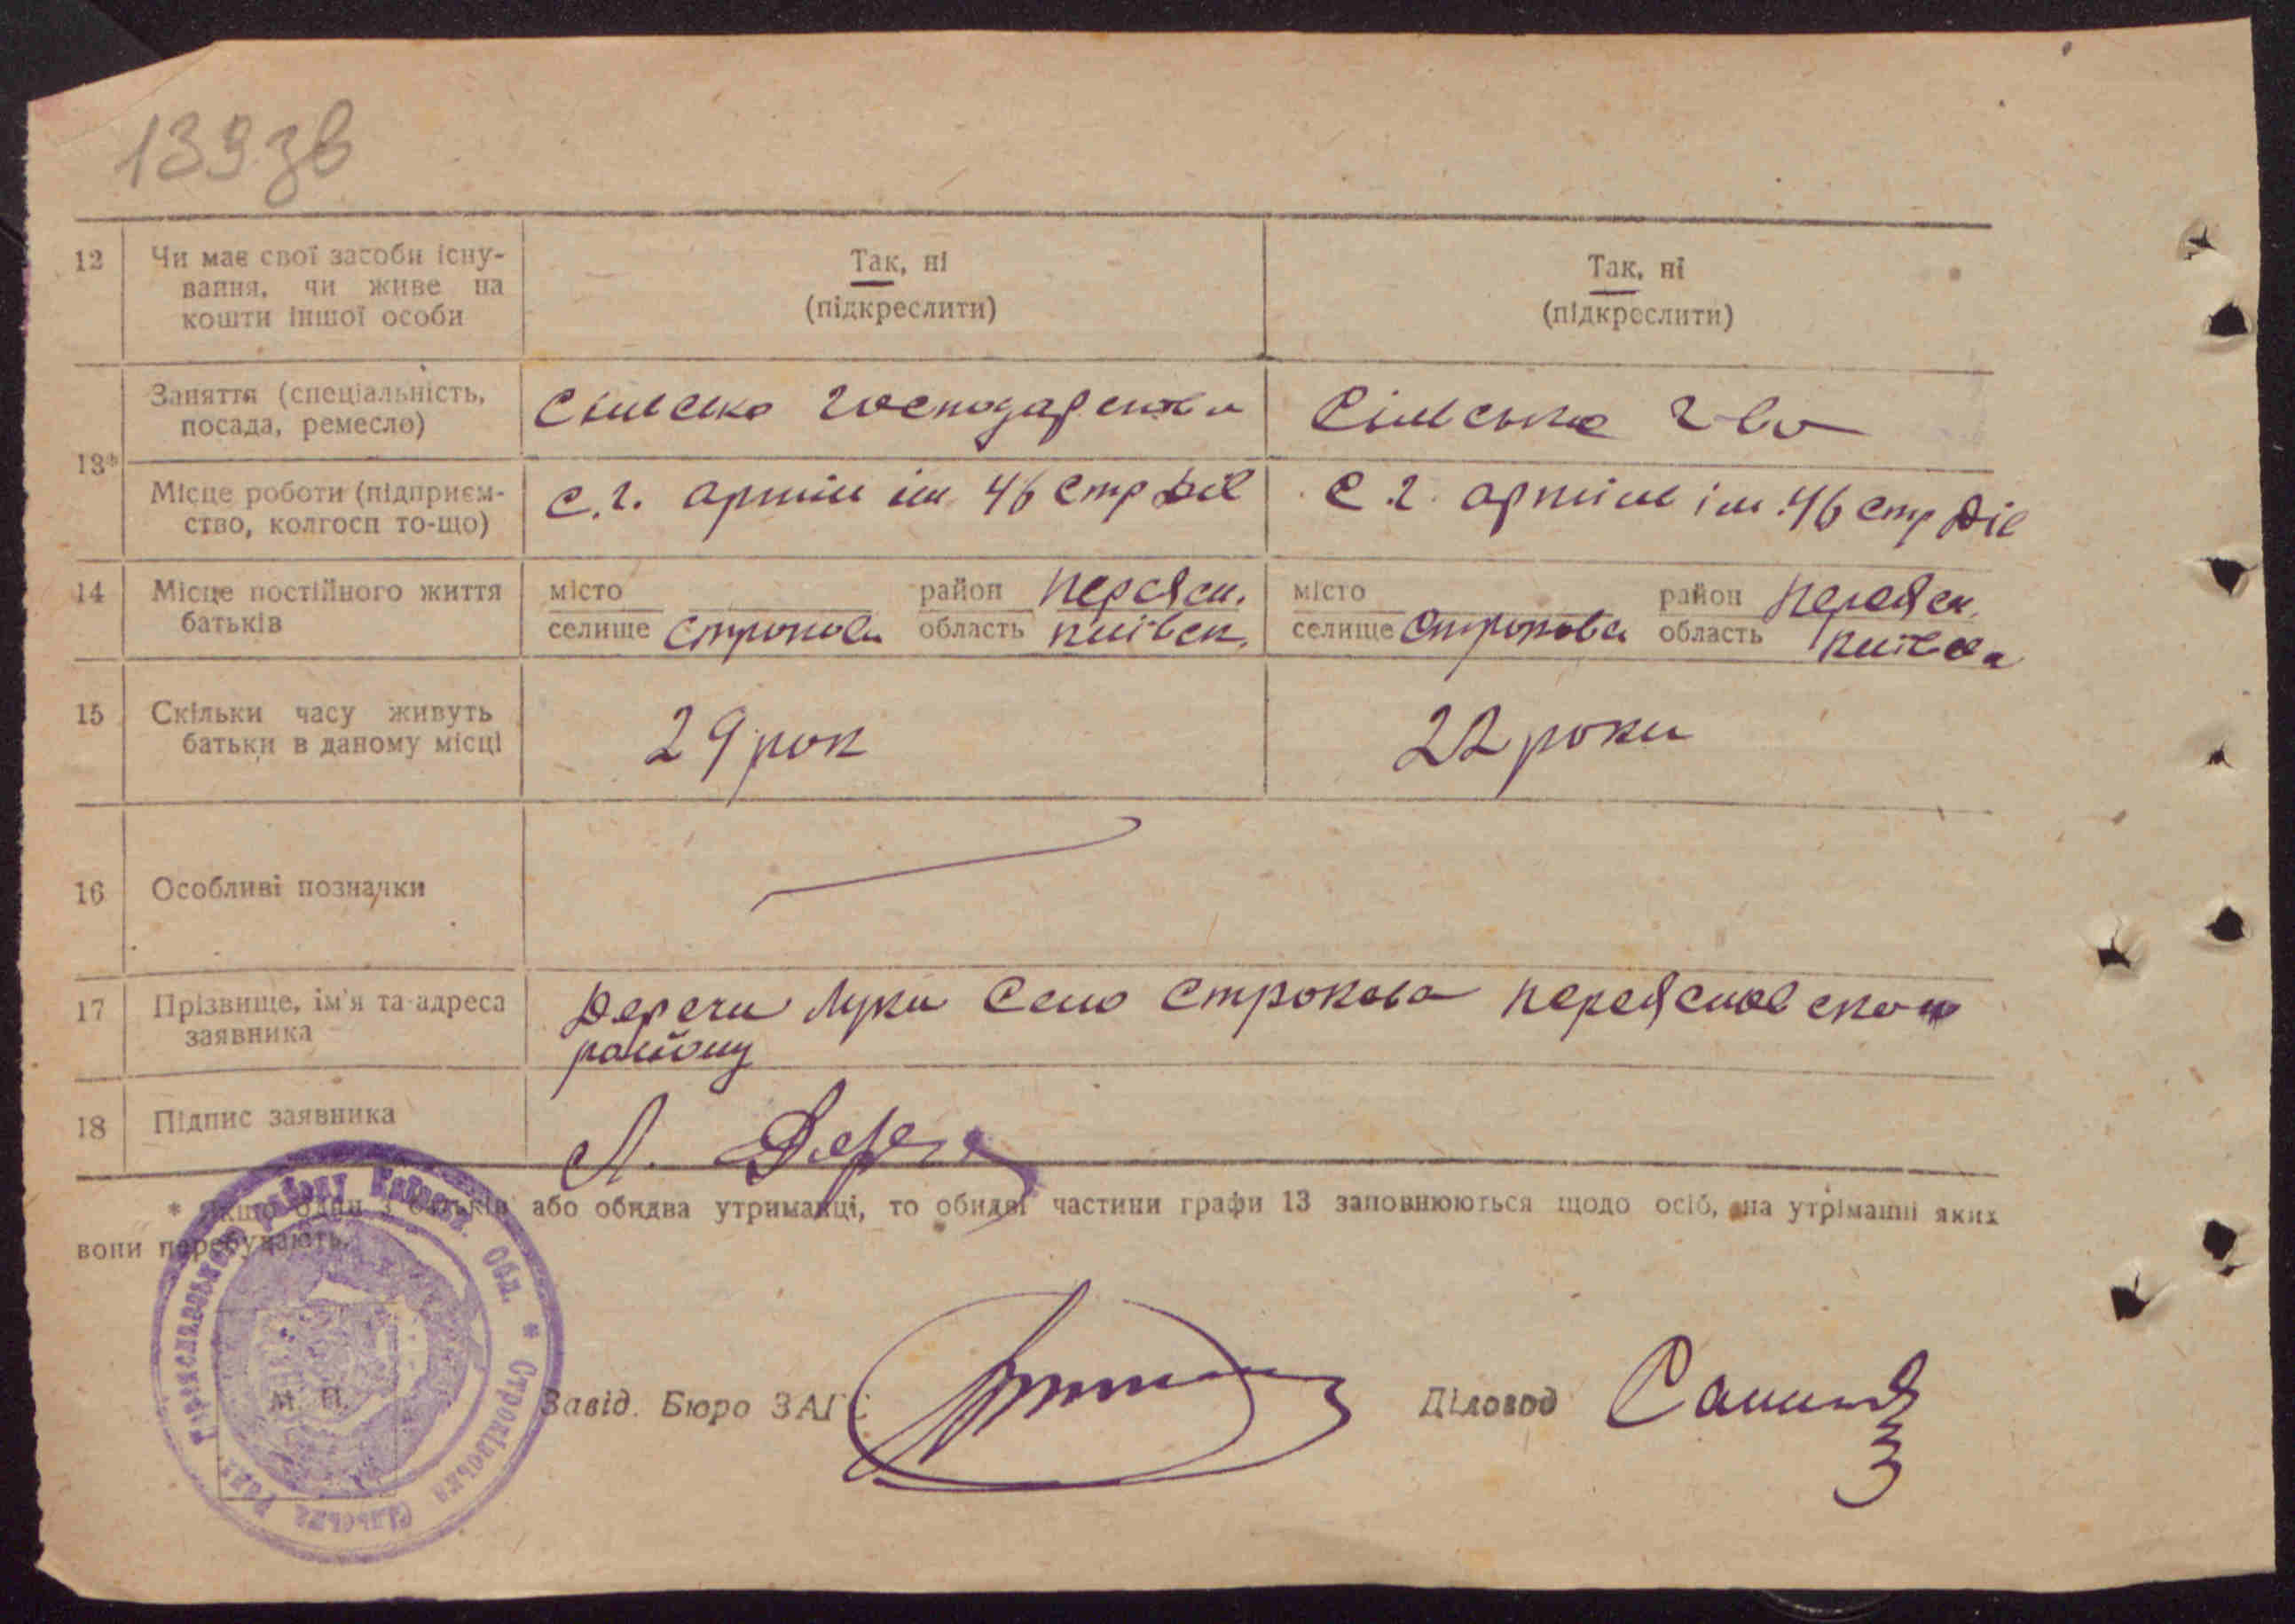 139 зв
12 Чи має свої засоби існу-
вання, чи живе на
кошти іншої особи
Так, ні
(підкреслити)
Так, ні
(підкреслити)
13*
Заняття (спеціальність,
посада, ремесло)
Сільско господарство
Сільське г-во
Місце роботи (підприєм-
ство, колгосп то-що)
с.г. артіль ім 46 стр Діє
с.г. артіль ім. 46 стр Діє
14 Місце постійного життя
батьків
місто
селище Строкова
район Переясл.
область київск.
місто
селище Строкова
район Переясл.
область
15 Скільки часу живуть
батьки в даному місці
29 рок
22 роки
16 Особливі позначки
17 Прізвище, ім'я та адреса
заявника
Дереча Луки Село Строкова Переяславского
району
18 Підпис заявника
Л. Дереча
* Якщо один з батьків або обидва утриманці, то обидві частини графи 13 заповнюються щодо осіб, на утріманні яких
вони перебувають.
Переяславського району Київськ. Обл. * Строківська сільська рада
М. П.
Завід. Бюро ЗАГС
Діловод